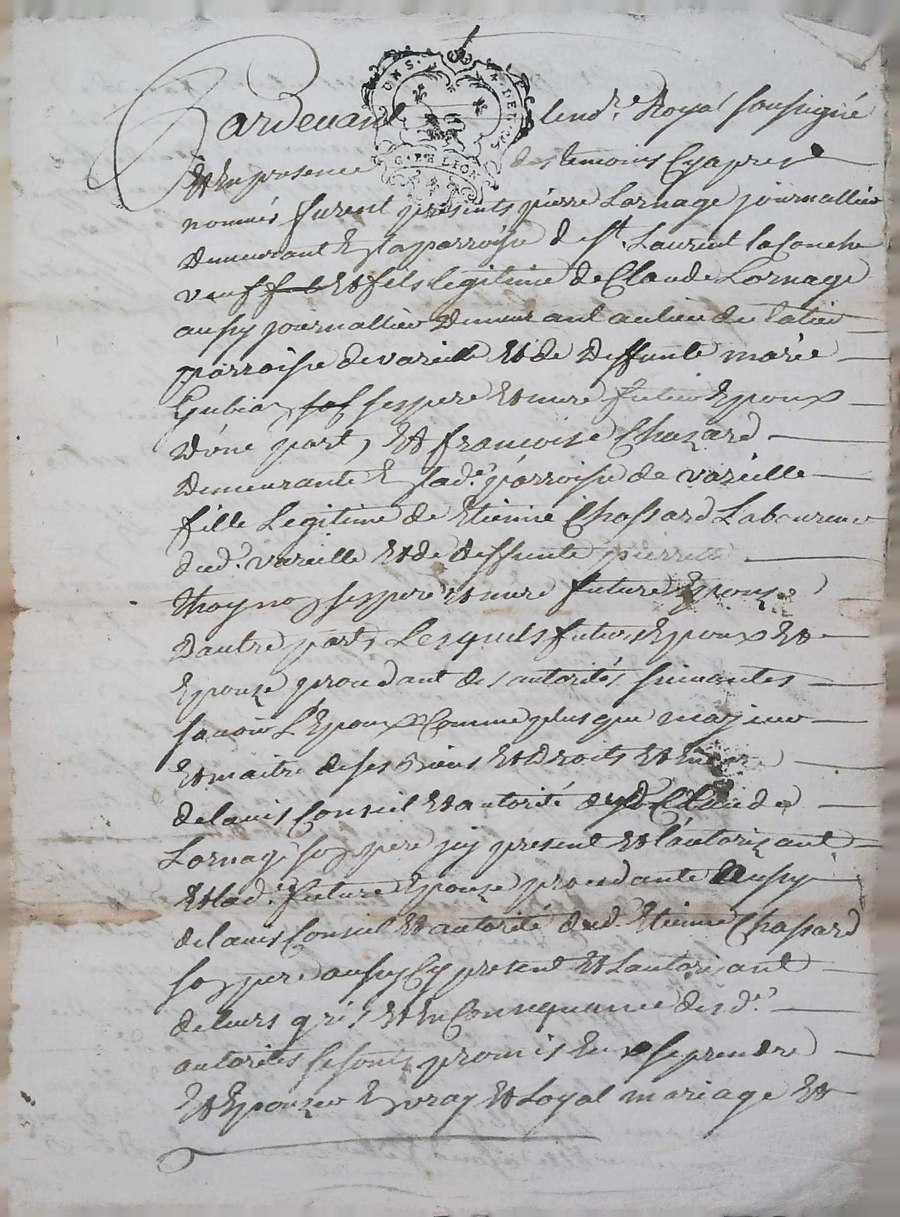 Pardevant le nore Royal soussigné
Et En presence des temoins Cyapres
nommés furent présents pierre Lornage journallier
demeurant En la parroisse de St. Laurent la Conche
veuf Et fils legitime de Claude Lornage
aussy journallier demeurant au lieu de
parroisse de vareille Et de deffunte marie
ses pere Et mere futur Epoux
D'une part, Et francoise Chazard
demeurante En sade. parroisse de vareille
fille Legitime de Etienne Chassard Laboureur
dud. vareille Et de deffunte pierrette
ses pere et mere future Epouze
D'autre part, Lesquels futurs Epoux Et
Epouze procedant des autorités suivantes
savoir L'Epoux Comme plus que majeur
Et maitre de ses Biens Et Droits Et Encore
de lavis Conseil Et autorité dud. Claude
Lornage son pere icy present Et l'autorizant
Et lad. future Epouze procedante Aussy
de lavis Conseil Et autorité dud. Etienne Chassard
son pere aussy Cy present Et Lautorizant
de leurs grés Et En Consequance desde.
autorités se sont promis de se prendre
Et Epouzer En vray Et Loyal mariage Et